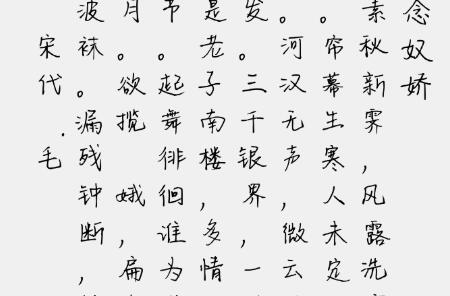 念奴娇
素秋新霁,风露洗
。帘幕生寒人未定
。河汉无声,微云
发。三千银界,一
是老子南楼,多情
节。起舞徘徊谁为
月。欲揽 娥,扁
波袜。漏残钟断,
宋代.毛